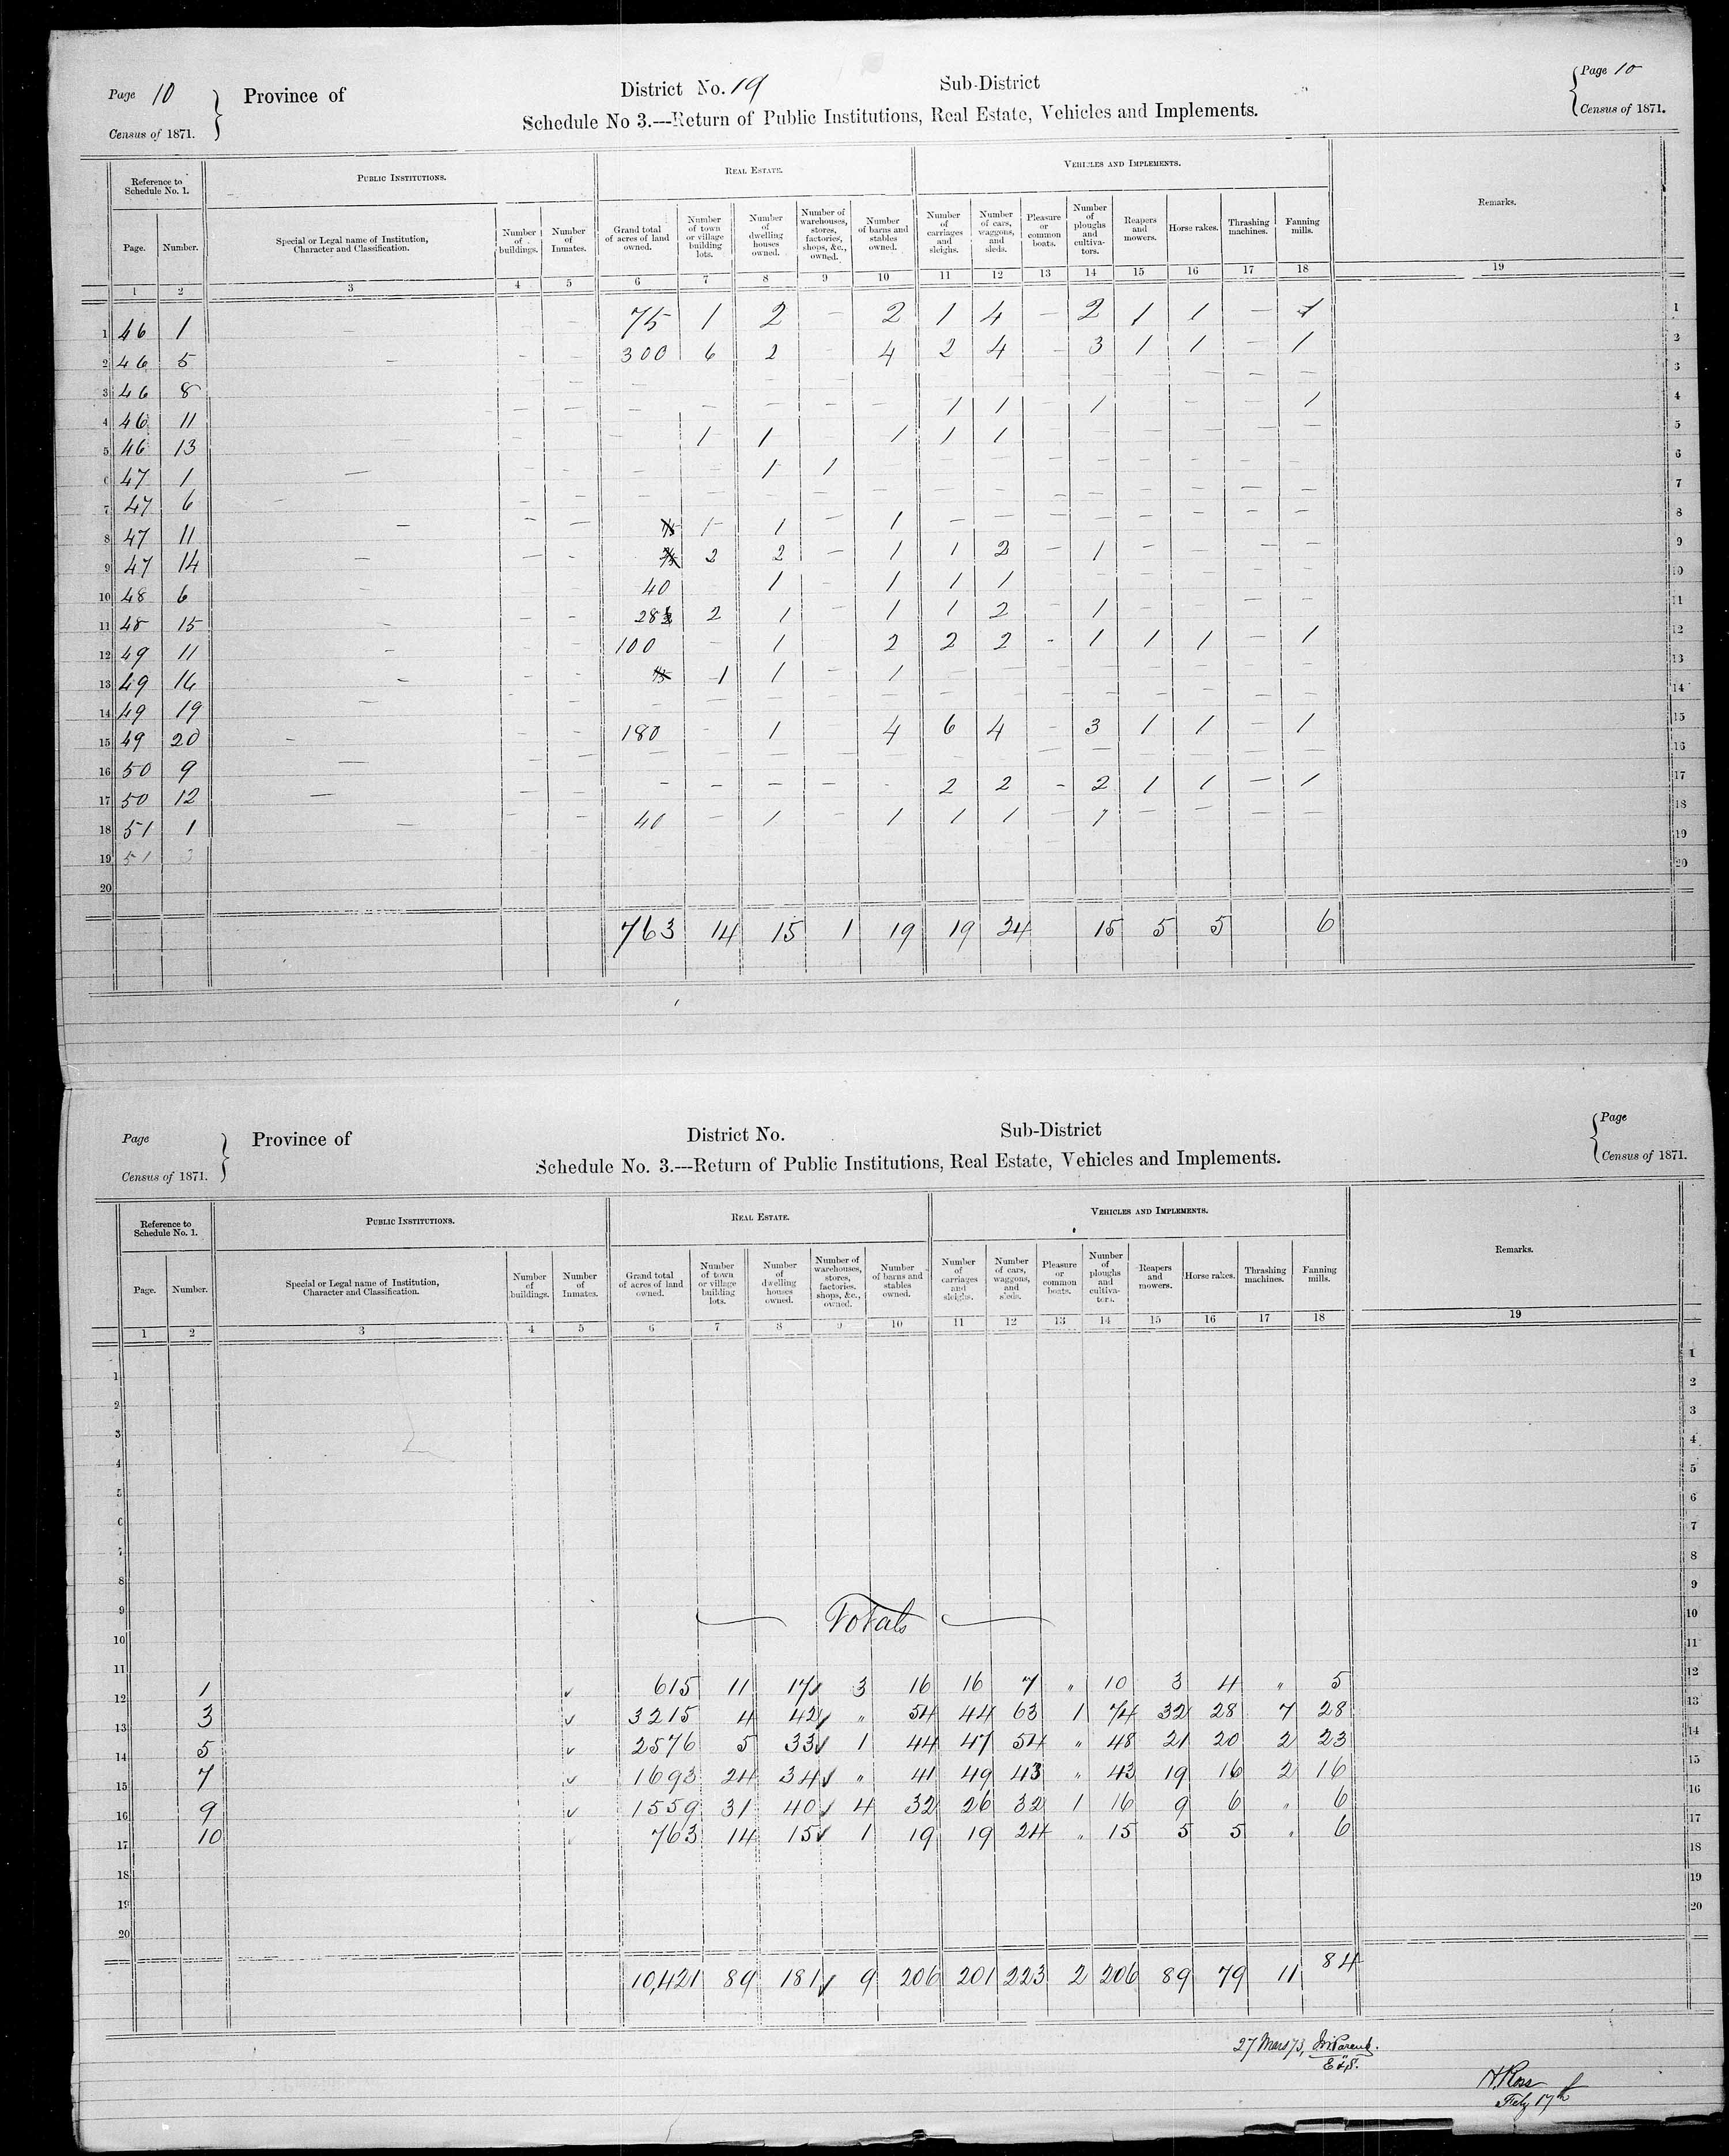 Page 10 Province of District No. 19 Sub-District Page 10
Census of 1871. Schedule No 3.---Return of Public Institutions, Real Estate, Vehicles and Implements. Census of 1871.
Reference to Schedule No. 1. PUBLIC INSTITUTIONS. REAL ESTATE. VEHICLES AND IMPLEMENTS. Remarks.
Page. Number. Special or Legal name of Institution, Character and Classification. Number of buildings. Number of Inmates. Grand total of acres of land owned. Number of town or village building lots. Number of dwelling houses owned. Number of warehouses, stores, factories, shops, &c., owned. Number of barns and stables owned. Number of carriages and sleighs. Number of cars, waggons, and sleds. Pleasure or common boats. Number of ploughs and cultiva-tors. Reapers and mowers. Horse rakes. Thrashing machines. Fanning mills.
1 2 3 4 5 6 7 8 9 10 11 12 13 14 15 16 17 18 19
1 46 1 — — 75 1 2 — 2 1 4 — 2 1 1 — 1 1
2 46 5 — — — 300 6 2 — 4 2 4 — 3 1 1 — 1 2
3 46 8 — — — — — — — 3
4 46 11 — — — — — — — — 1 1 — 1 — — — 1 4
5 46 13 — — 1 1 1 1 1 — — — — — — 5
6 47 1 — — — — — 1 1 — — — — — — — — — 6
7 47 6 — — — — — — — — — — — — — — — — 7
8 47 11 — — — 1 — 1 — 1 — — — — — — — — 8
9 47 14 — — - 2 2 — 1 1 2 — 1 — — — — 9
10 48 6 — 40 1 - 1 1 1 — — — — 10
11 48 15 — - - 28 2 1 — 1 1 2 — 1 — — — — 11
12 49 11 — - - 100 — 1 2 2 2 - 1 1 1 — 1 12
13 49 16 — - - 1 1 — 1 — — — — — — — — 13
14 49 19 — - — — — — — — — — — — — — 14
15 49 20 — - - 180 - 1 4 6 4 - 3 1 1 — 1 15
16 50 9 — — — — — — — — — — — — — — 16
17 50 12 — — — — — — — - 2 2 - 2 1 1 — 1 17
18 51 1 — — — 40 — 1 — 1 1 1 — 1 — — — — 18
19 51 3 19
20 20
763 14 15 1 19 19 24 15 5 5 6
Page Province of District No. Sub-District Page
Census of 1871. Schedule No. 3.---Return of Public Institutions, Real Estate, Vehicles and Implements. Census of 1871.
Reference to Schedule No. 1. PUBLIC INSTITUTIONS. REAL ESTATE. VEHICLES AND IMPLEMENTS. Remarks.
Page. Number. Special or Legal name of Institution, Character and Classification. Number of buildings. Number of Inmates. Grand total of acres of land owned. Number of town or village building lots. Number of dwelling houses owned. Number of warehouses, stores, factories, shops, &c., owned. Number of barns and stables owned. Number of carriages and sleighs. Number of cars, waggons, and sleds. Pleasure or common boats. Number of ploughs and cultiva-tors. Reapers and mowers. Horse rakes. Thrashing machines. Fanning mills.
1 2 3 4 5 6 7 8 9 10 11 12 13 14 15 16 17 18 19
1 1
2 2
3 3
4 4
5 5
6 6
7 7
8 8
9 9
Totals
10 10
11 11
12 1 ✓ 615 11 17✓ 3 16 16 7 " 10 3 4 " 5 12
13 3 ✓ 3215 4 42✓ " 54 44 63 1 74 32 28 7 28 13
14 5 ✓ 2576 5 33✓ 1 44 47 54 " 48 21 20 2 23 14
15 7 ✓ 1693 24 34✓ " 41 49 43 " 43 19 16 2 16 15
16 9 ✓ 1559 31 40✓ 4 32 26 32 1 16 9 6 " 6 16
17 10 ✓ 763 14 15✓ 1 19 19 24 " 15 5 5 " 6 17
18 18
19 19
20 20
10,421 89 181✓ 9 206 201 223 2 206 89 79 11 84
27 Mars 73, Parent.
A. Ross
Feby 17th